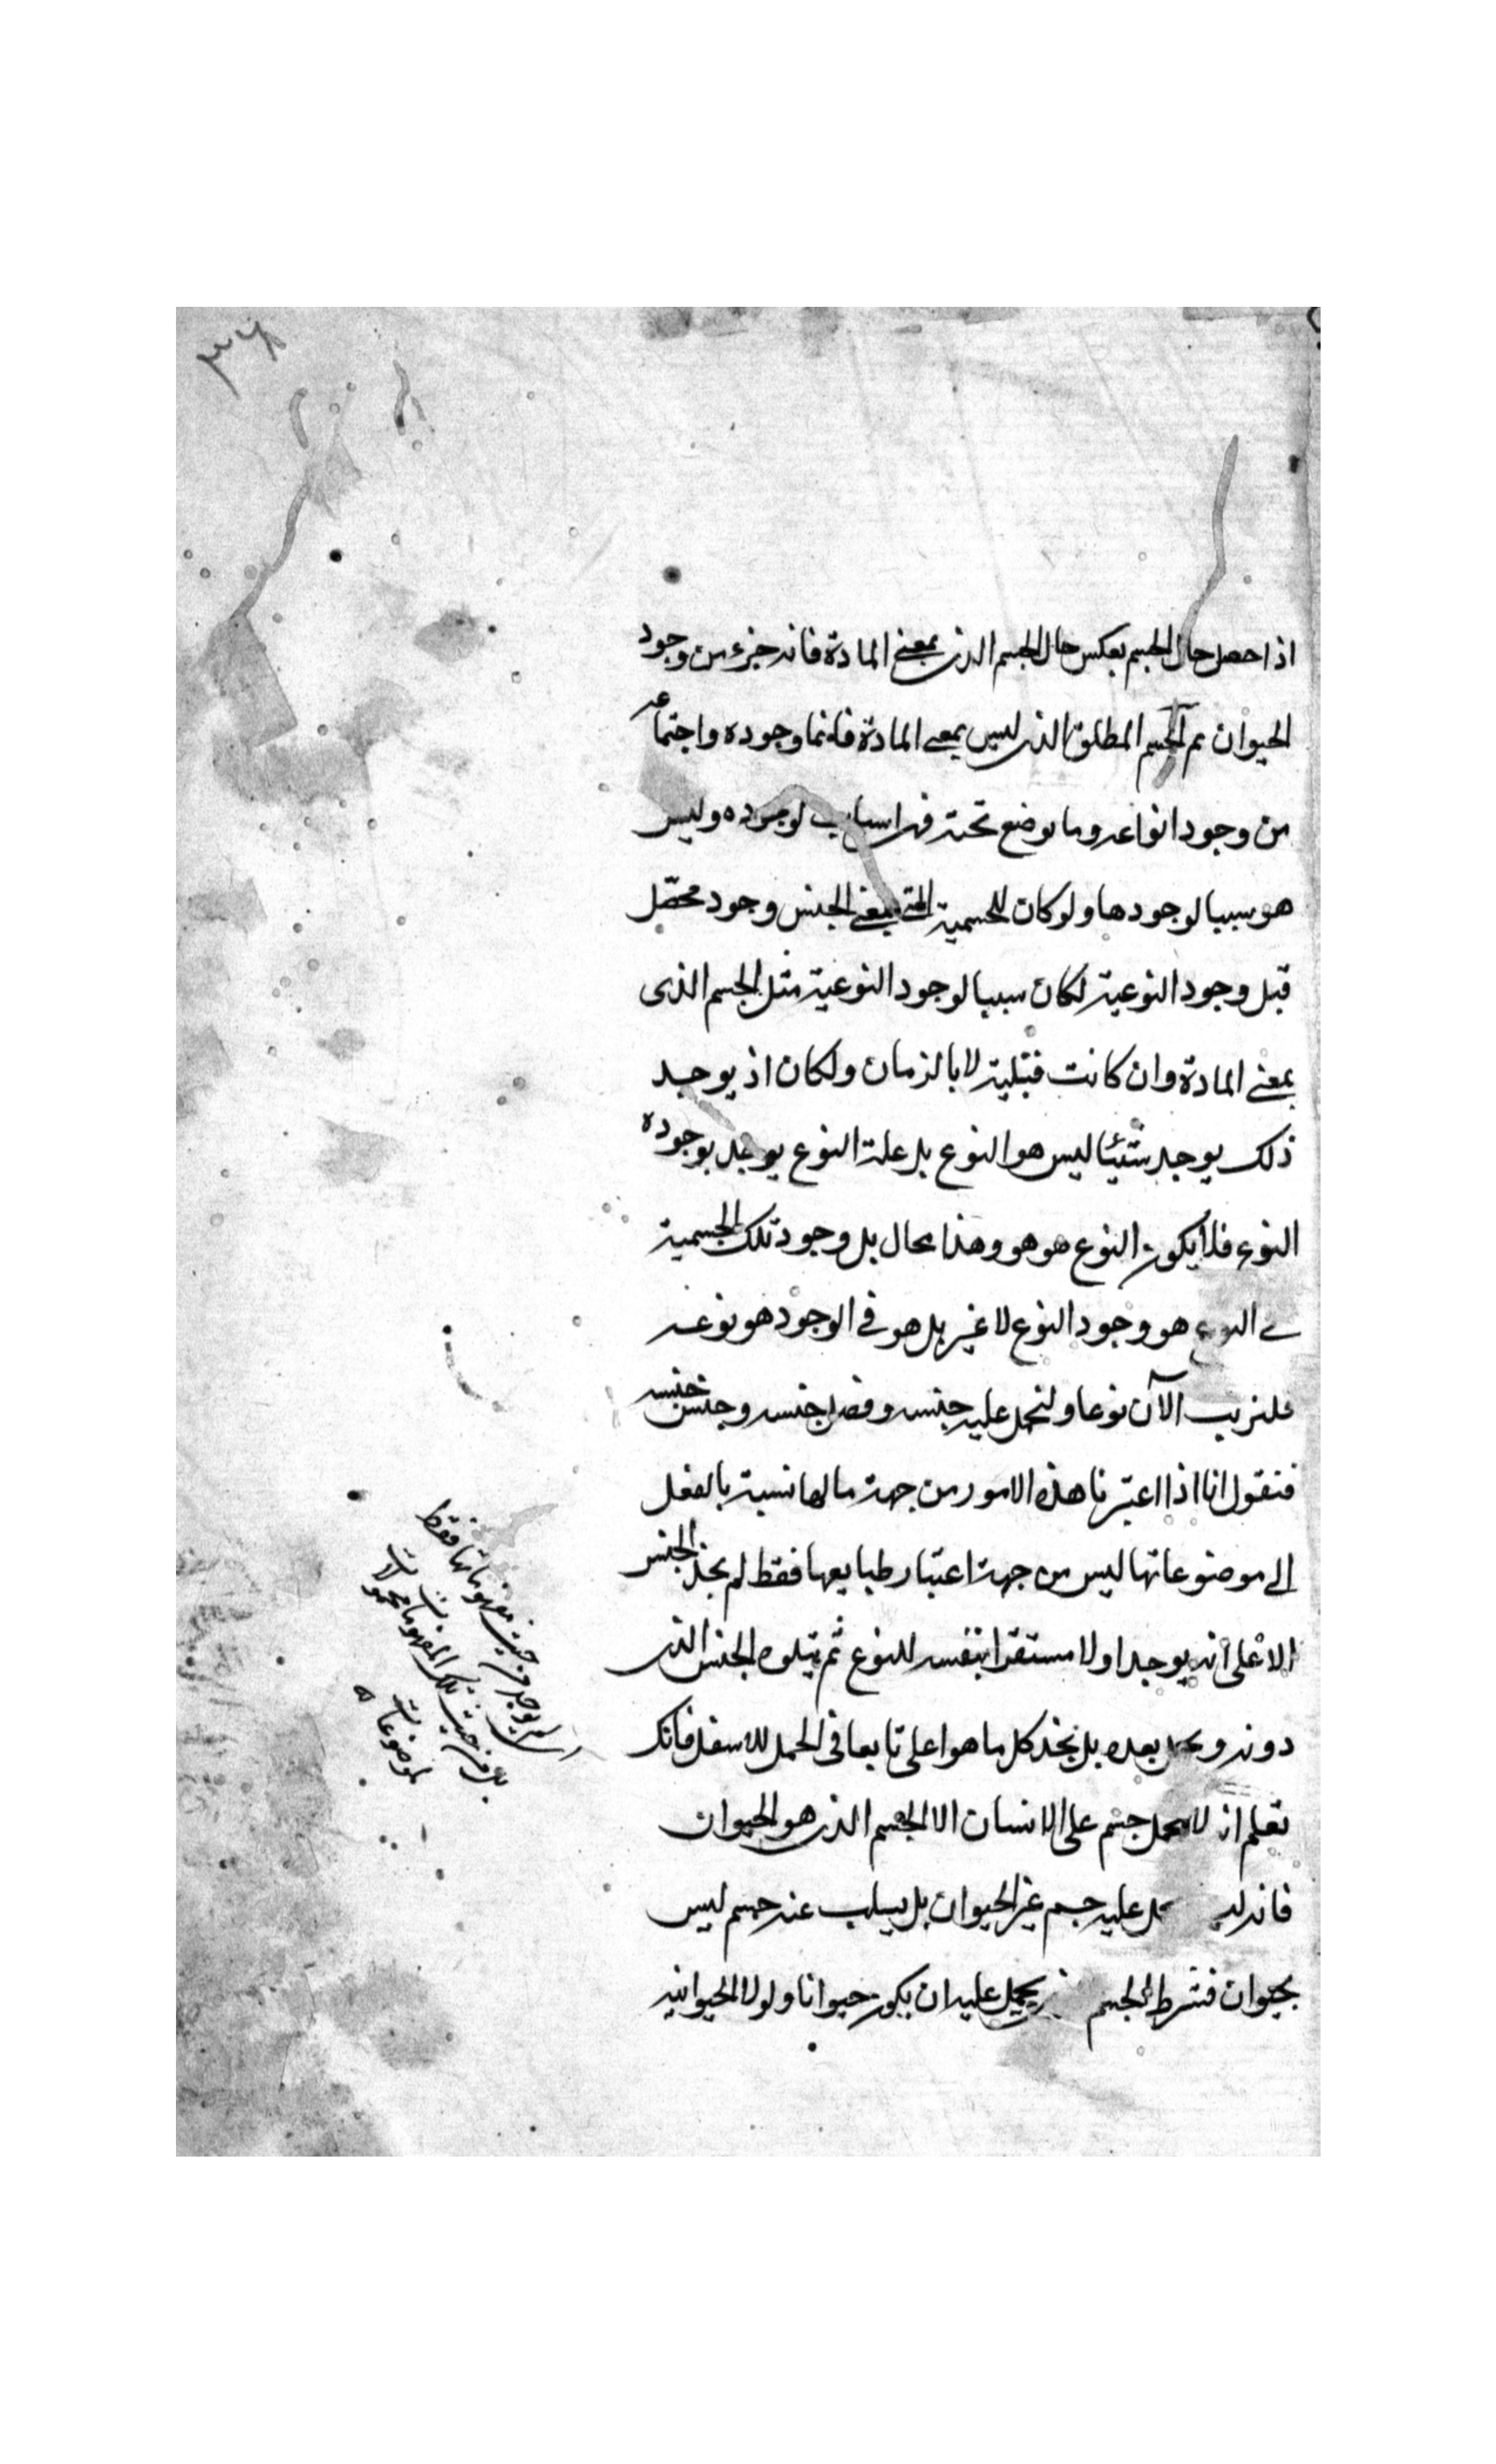 ٣٦٨
اذا حصل حال الجسم بعكس حال الجسم الذى بمعنى المادة فانه جزء من وجود
الحيوان ثم الجسم المطلق الذى ليس بمعنى المادة فانما وجوده واجتماعه
من وجود انواعه وما يوضع تحته فهى اسباب لوجوده وليس
هو سببا لوجودها ولو كان للجسمية التى بمعنى الجنس وجود محصّل
قبل وجود النوعية لكان سببا لوجود النوعية مثل الجسم الذى
بمعنى المادة وان كانت قبلية لا بالزمان ولكان اذ يوجد
ذلك يوجد شيئا ليس هو النوع بل علة النوع يوجد بوجوده
النوع فلا يكون النوع هو هو وهذا محال بل وجود تلك الجسمية
فى النوع هو وجود النوع لا غير بل هو فى الوجود هو نوعه
فلنرتب الآن نوعا ولنحمل عليه جنسه وفصل جنسه وجنس جنسه
فنقول انا اذا اعتبرنا هذه الامور من جهة ما لها نسبة بالفعل
الى موضوعاتها ليس من جهة اعتبار طبايعها فقط لم نجد الجنس
الاعلى انه يوجد اولا مستقرا بنفسه للنوع ثم يتلوه الجنس الذى
دونه ويحمل بعده بل نجد كل ما هو اعلى تابعا فى الحمل للاسفل فانك
تعلم انه لا يحمل جسم على الانسان الا الجسم الذى هو الحيوان
فانه عليه جسم غير الحيوان بل يسلب عنه جسم ليس
بحيوان فشرط الجسم يحمل عليه ان يكون حيوانا ولولا الحيوانية
اى لم يوجد من حيث مفهوماتها فقط
بل من حيث تلك المفهومات محمولات
لموضوعات